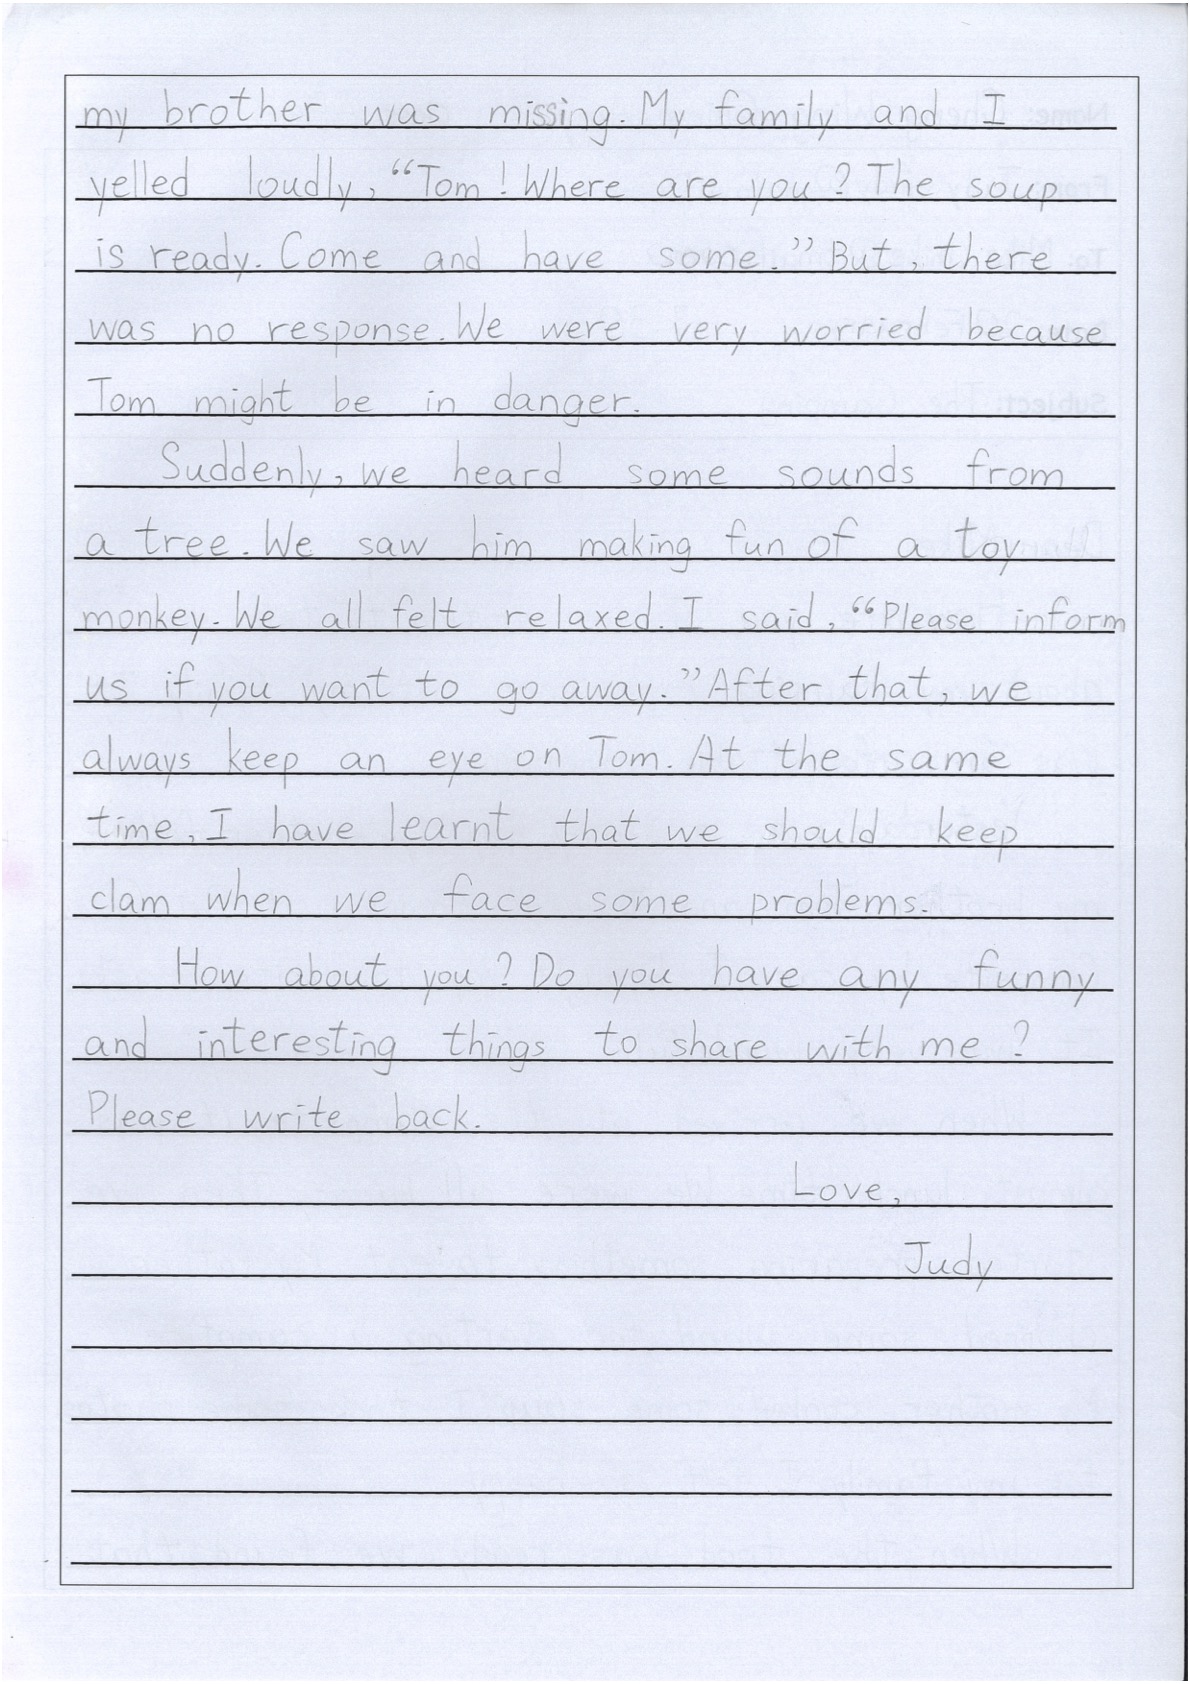 my brother was missing. My family and I
yelled loudly, “Tom! Where are you? The soup
is ready. Come and have some.” But, there
was no response. We were very worried because
Tom might be in danger.
Suddenly, we heard some sounds from
a tree. We saw him making fun of a toy
monkey. We all felt relaxed. I said, “Please inform
us if you want to go away.” After that, we
always keep an eye on Tom. At the same
time, I have learnt that we should keep
clam when we face some problems.
How about you? Do you have any funny
and interesting things to share with me?
Please write back.
Love,
Judy